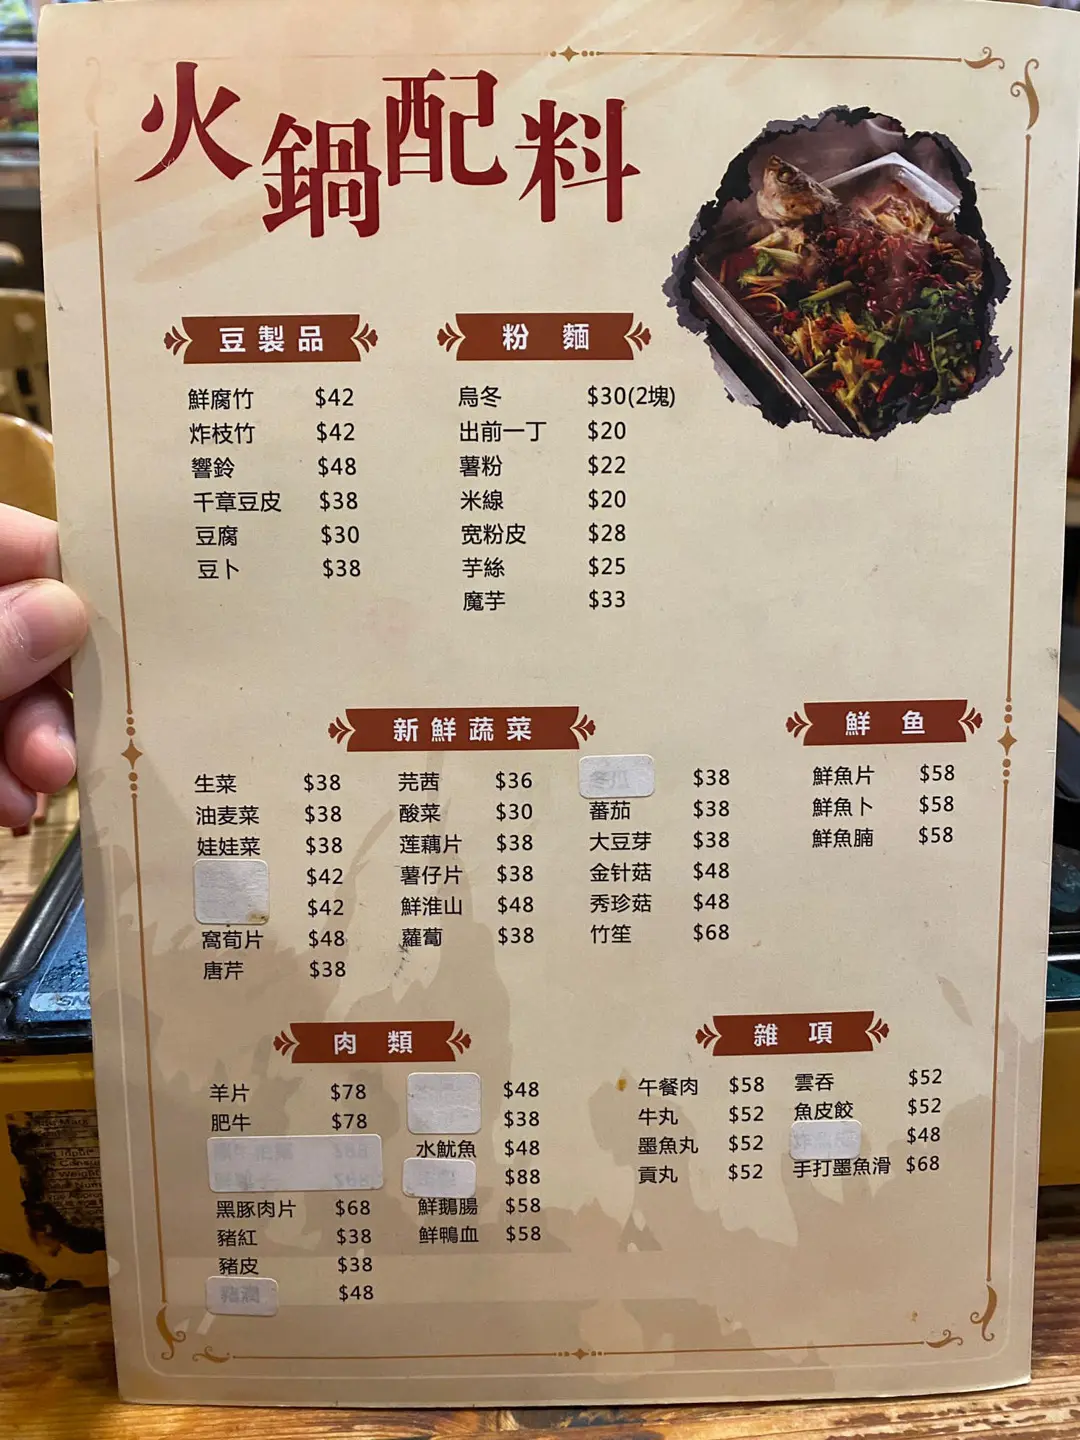 火鍋配料
豆製品
鮮腐竹 $42
炸枝竹 $42
響鈴 $48
千章豆皮 $38
豆腐 $30
豆卜 $38
粉麵
烏冬 $30(2塊)
出前一丁 $20
薯粉 $22
米線 $20
宽粉皮 $28
芋絲 $25
魔芋 $33
新鮮蔬菜
生菜 $38
油麦菜 $38
娃娃菜 $38
$42
$42
窩荀片 $48
唐芹 $38
芫茜 $36
酸菜 $30
莲藕片 $38
薯仔片 $38
鮮淮山 $48
蘿蔔 $38
冬瓜 $38
蕃茄 $38
大豆芽 $38
金针菇 $48
秀珍菇 $48
竹笙 $68
鮮鱼
鮮魚片 $58
鮮魚卜 $58
鮮魚腩 $58
肉類
羊片 $78
肥牛 $78
黑豚肉片 $68
豬紅 $38
豬皮 $38
豬潤 $48
$48
$38
水魷魚 $48
$88
鮮鵝腸 $58
鮮鴨血 $58
雜項
午餐肉 $58
牛丸 $52
墨魚丸 $52
貢丸 $52
雲吞 $52
魚皮餃 $52
$48
手打墨魚滑 $68